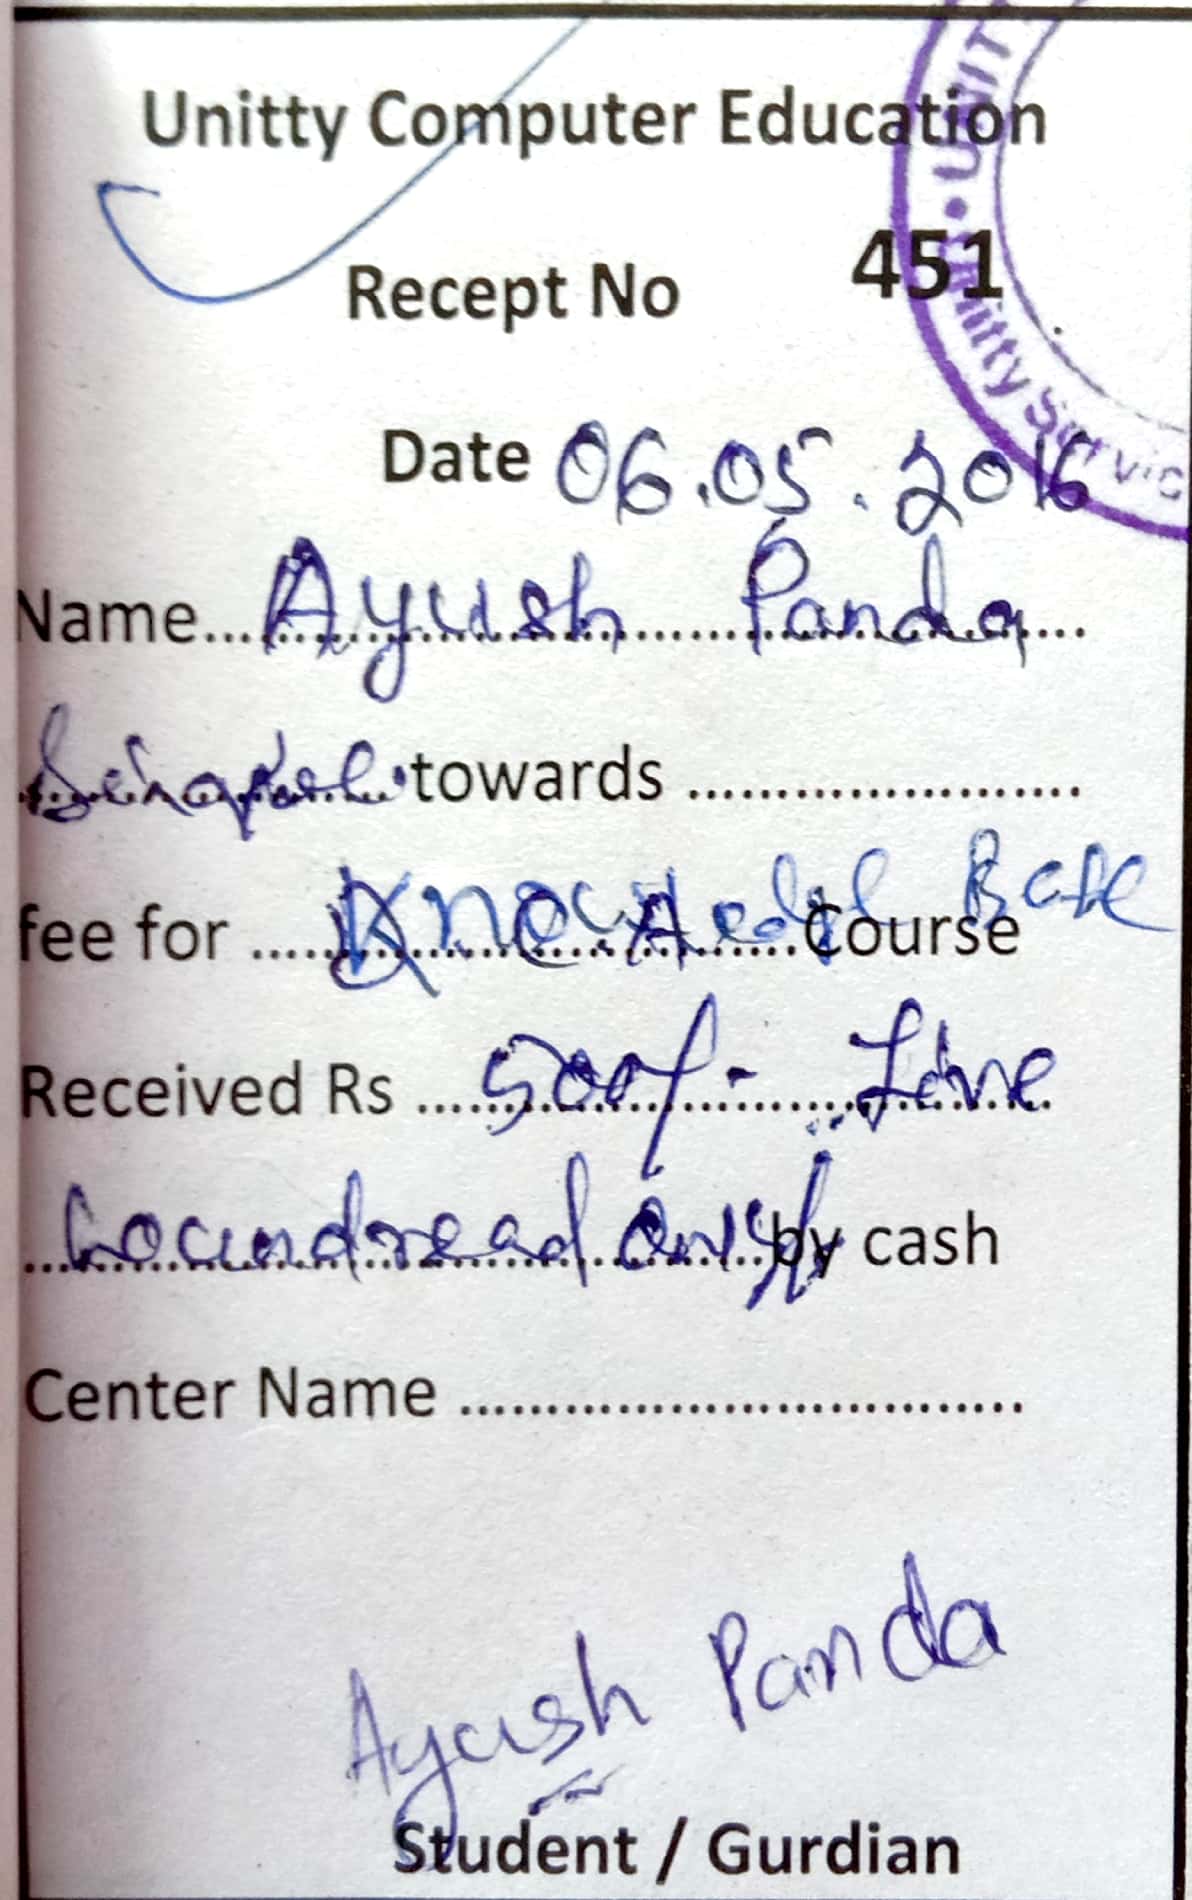 Unitty Computer Education
Recept No 451
Date 06.05.2016
Name Ayush Panda
Sinapali towards
fee for Course
Received Rs 500/- Five
houndread only by cash
Center Name
Ayush Panda
Student / Gurdian
Unitty Servic